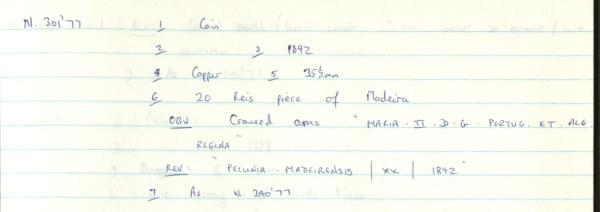 N. 301'77 1 Coin
2 3 1842
4 Copper 5 35½mm
6 20 Reis piece of Madeira
OBV: Crowned arms "MARIA · II · D · G · PORTUG. ET. ALG.
REGINA"
REV: "PECUNIA · MADEIRENSIS | XX | 1842"
7 As N. 290'77